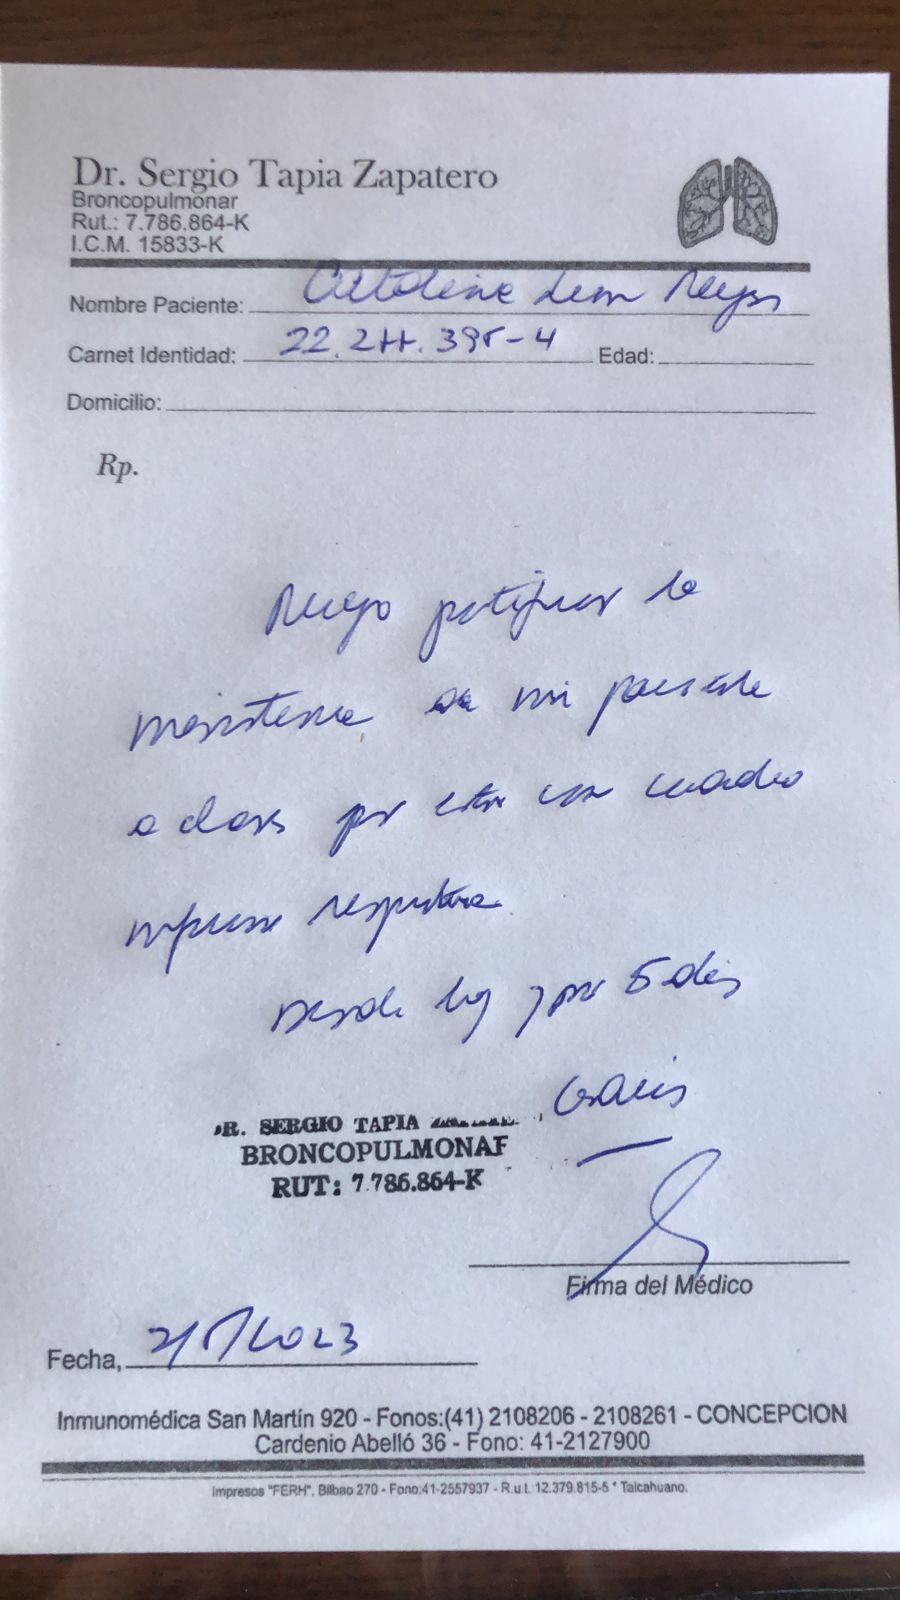 Dr. Sergio Tapia Zapatero
Broncopulmonar
Rut.: 7.786.864-K
I.C.M. 15833-K
Nombre Paciente: Reyes
Carnet Identidad: 22.2 395-4 Edad:
Domicilio:
Rp.
Ruego justificar la
inasistencia de mi paciente
a clases por estar con cuadro
respiratorio
Desde hoy y por 5 días
Gracias
DR. SERGIO TAPIA
BRONCOPULMONAR
RUT: 7.786.864-K
Firma del Médico
Fecha, 2/5/2023
Inmunomédica San Martín 920 - Fonos:(41) 2108206 - 2108261 - CONCEPCION
Cardenio Abelló 36 - Fono: 41-2127900
Impresos "FERH", Bilbao 270 - Fono:41-2557937 - R.u.t. 12.379.815-5 * Talcahuano.